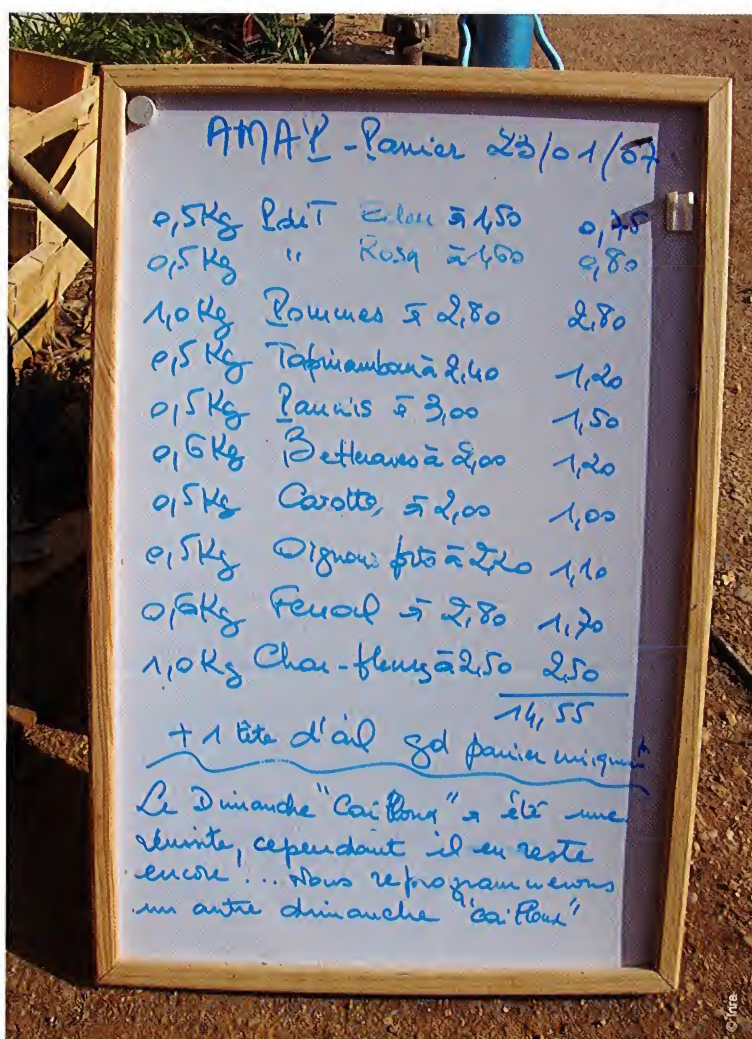 AMAP - Panier 23/01/07
0,5Kg PdeT Eden à 1,50 0,75
0,5Kg " Rosa à 1,60 0,80
1,0Kg Pommes à 2,80 2,80
0,5Kg Topinambour à 2,40 1,20
0,5Kg Panais à 3,00 1,50
0,6Kg Betteraves à 2,00 1,20
0,5Kg Carottes à 2,00 1,00
0,5Kg Oignons à 2,20 1,10
0,6Kg Fenouil à 2,80 1,70
1,0Kg Chou-fleurs à 2,50 2,50
14,55
+ 1 tête d'ail gd panier uniqumt
Le Dimanche "Cailloux" a été une
réussite, cependant il en reste
encore ... Nous reprogrammerons
un autre dimanche "cailloux"
© Inra